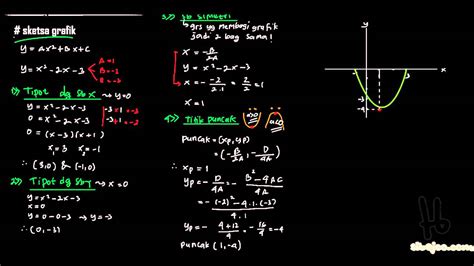 # sketsa grafik
y = Ax² + Bx + C
y = x² - 2x - 3
A = 1
B = -2
C = -3
1) Tipot dg sb x → y = 0
y = x² - 2x - 3
0 = x² - 2x - 3
0 = (x - 3)(x + 1)
x = 3 x = -1
∴ (3,0) & (-1,0)
-3 · 1 = -3
-3 + 1 = -2
2) Tipot dg sb y → x = 0
y = x² - 2x - 3
x = 0
y = 0 - 0 - 3 → y = -3
∴ (0, -3)
3) sb simetri
grs yg membagi grafik
jadi 2 bag sama!
x = -B/2A
y = x² - 2x - 3
x = - -2/2.1 = 2/2 = 1
x = 1
4) Titik puncak
a>0
a<0
puncak = (xp, yp)
= (-B/2A, -D/4A)
∴ xp = 1
yp = -D/4A = - B² - 4AC/4A
= - (-2)² - 4.1.(-3)/4.1
yp = - 4 + 12/4 = - 16/4 = -4
puncak (1, -4)
y
x
-1
3
-3
-4